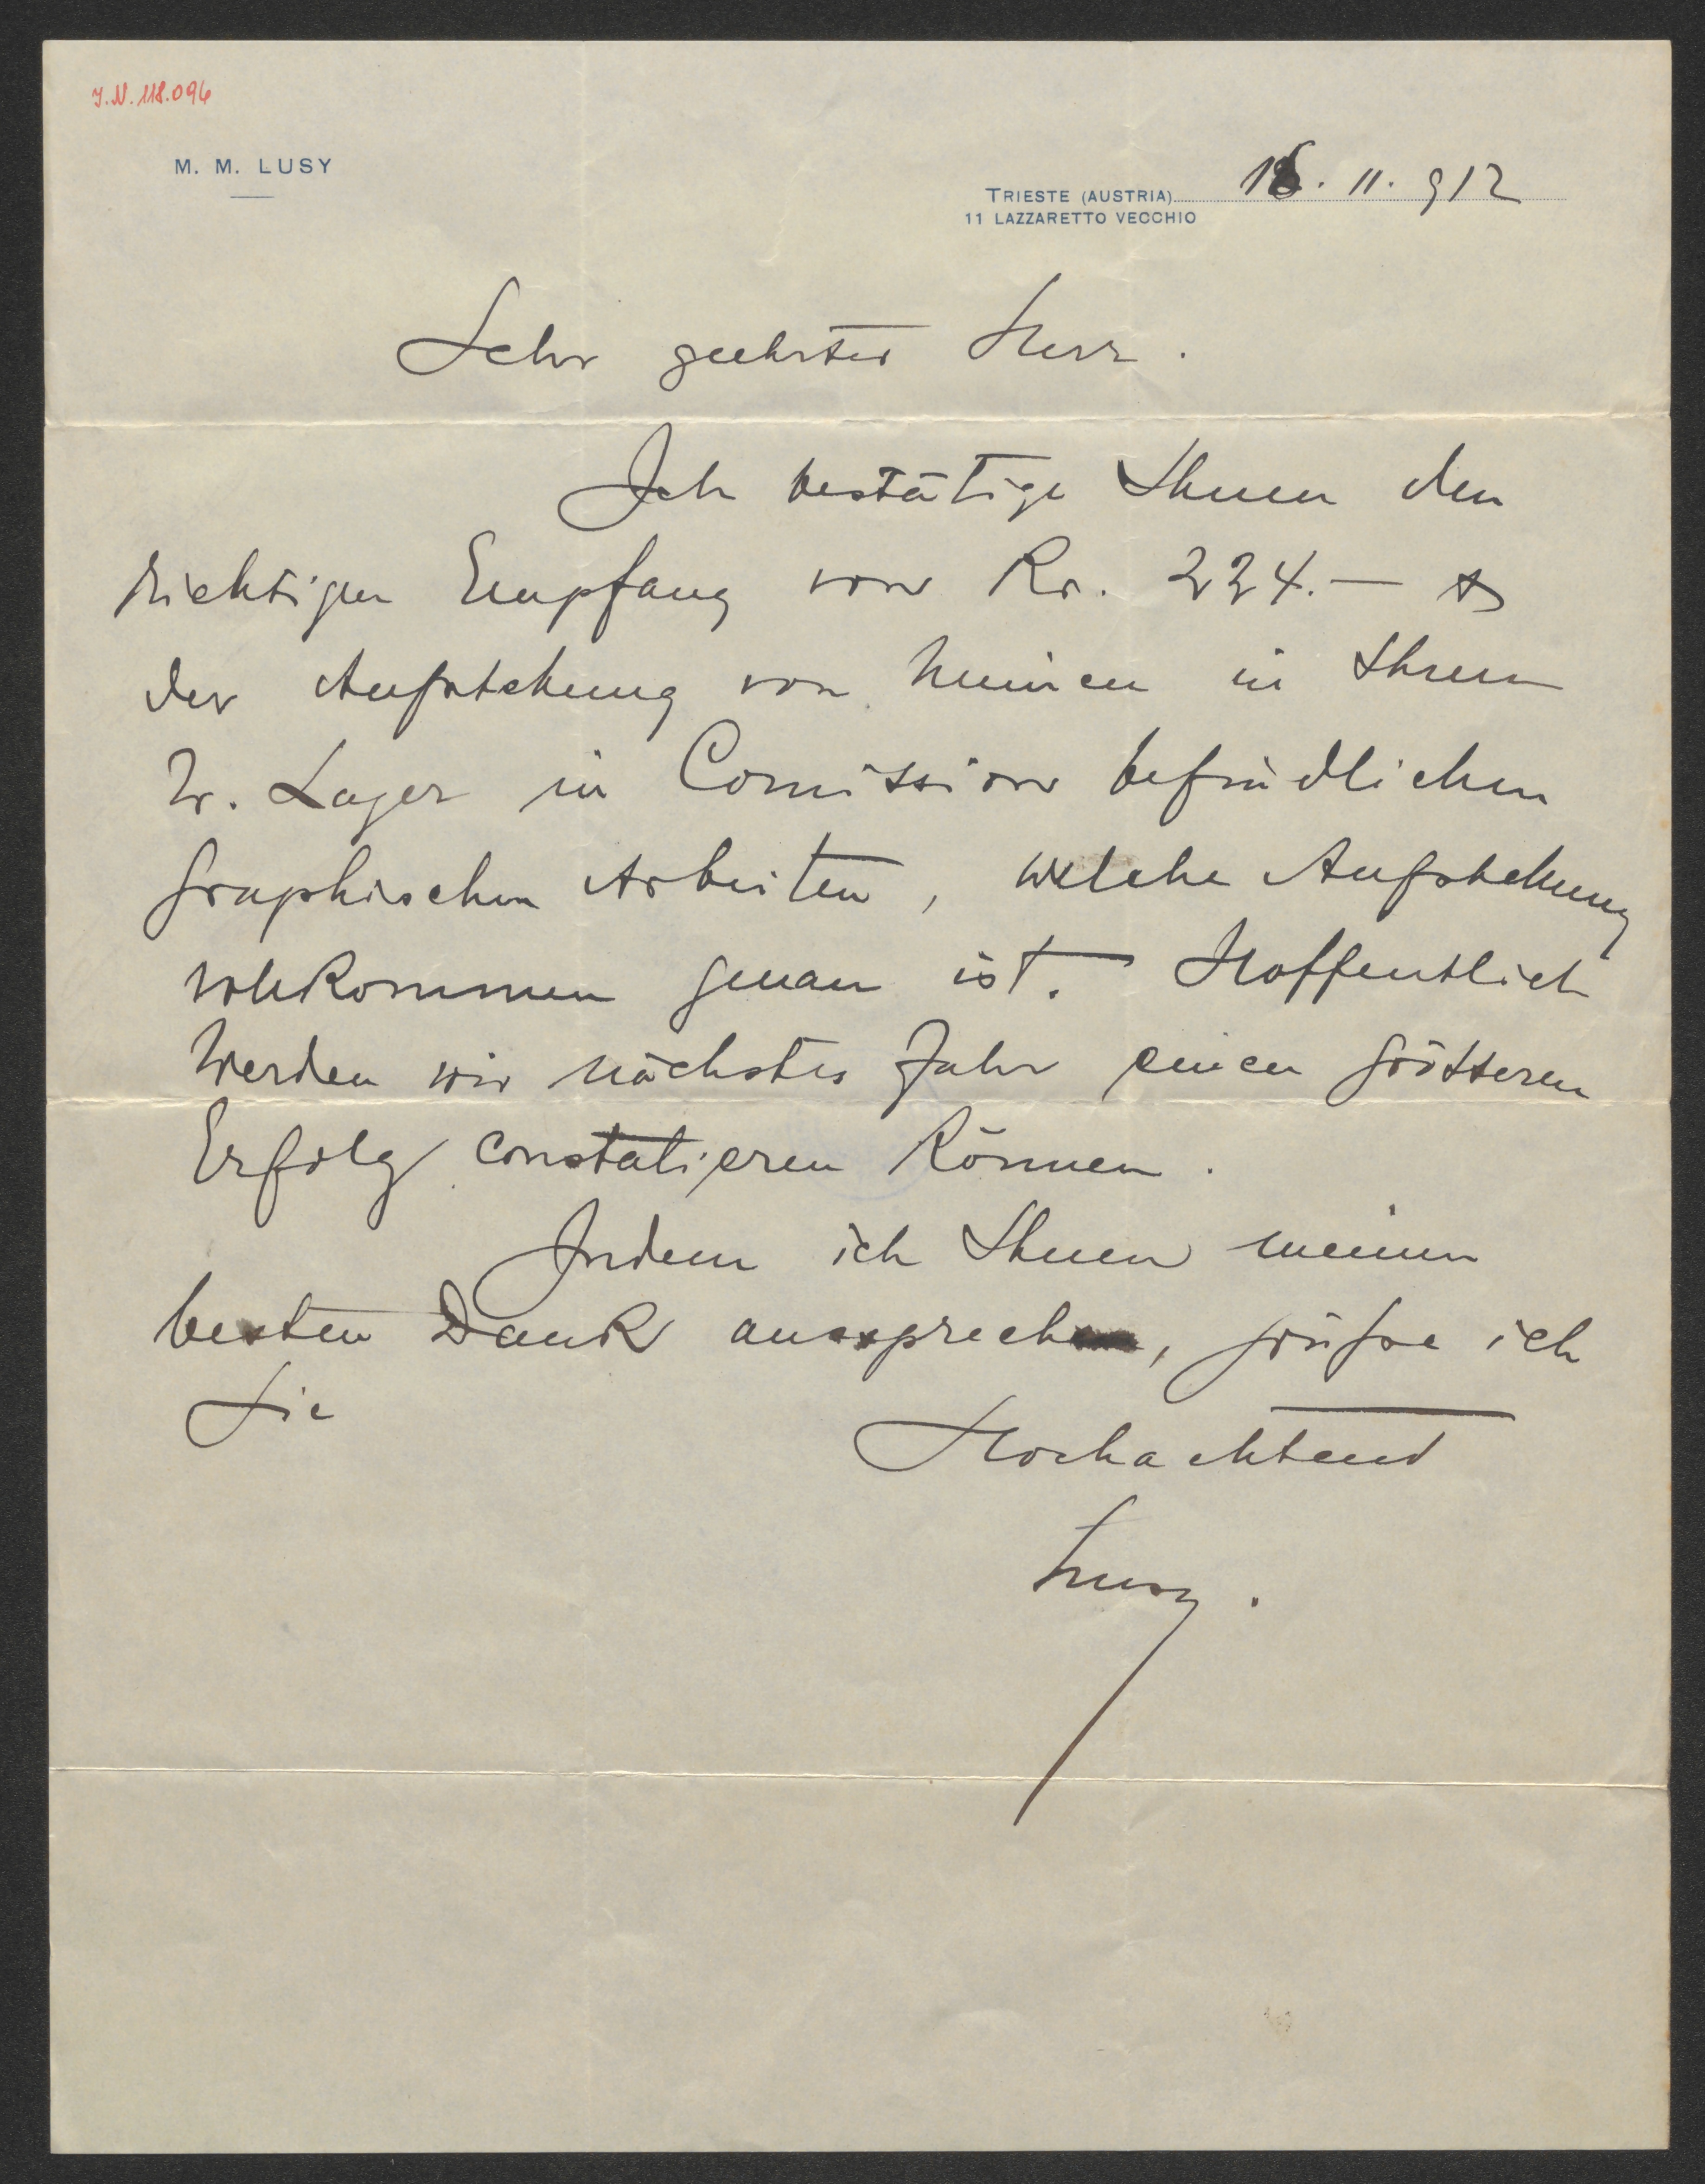 J.N. 118.096
M. M. LUSY
TRIESTE (AUSTRIA) 16. 11. 912
11 LAZZARETTO VECCHIO
Sehr geehrter Herr.
Ich bestätige Ihnen den
richtigen Empfang von Kr. 224.—
der Aufstehung von meinen in Ihrem
W. Lager in Comission befindlichen
graphischen Arbeiten, welche Aufstehung
vollkommen genau ist. Hoffentlich
werden wir nächstes Jahr einen grösseren
Erfolg constatieren können.
Indem ich Ihnen meinen
besten Dank ausspreche, grüße ich
Sie
Hochachtend
Lusy.